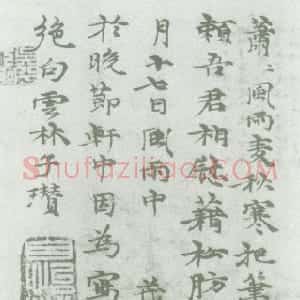 蕭〻風雨麦秋寒把筆
頼吾君相慰藉松肪
月十七日風雨中
於晚節軒中因為寫
絶句雲林子瓚
Shufaziliao.com